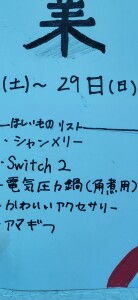 業
(土)～29日(日)
ほしいものリスト
・シャンメリー
・Switch2
・電気圧力鍋(角煮用)
・かわいいアクセサリー
・アマギフ